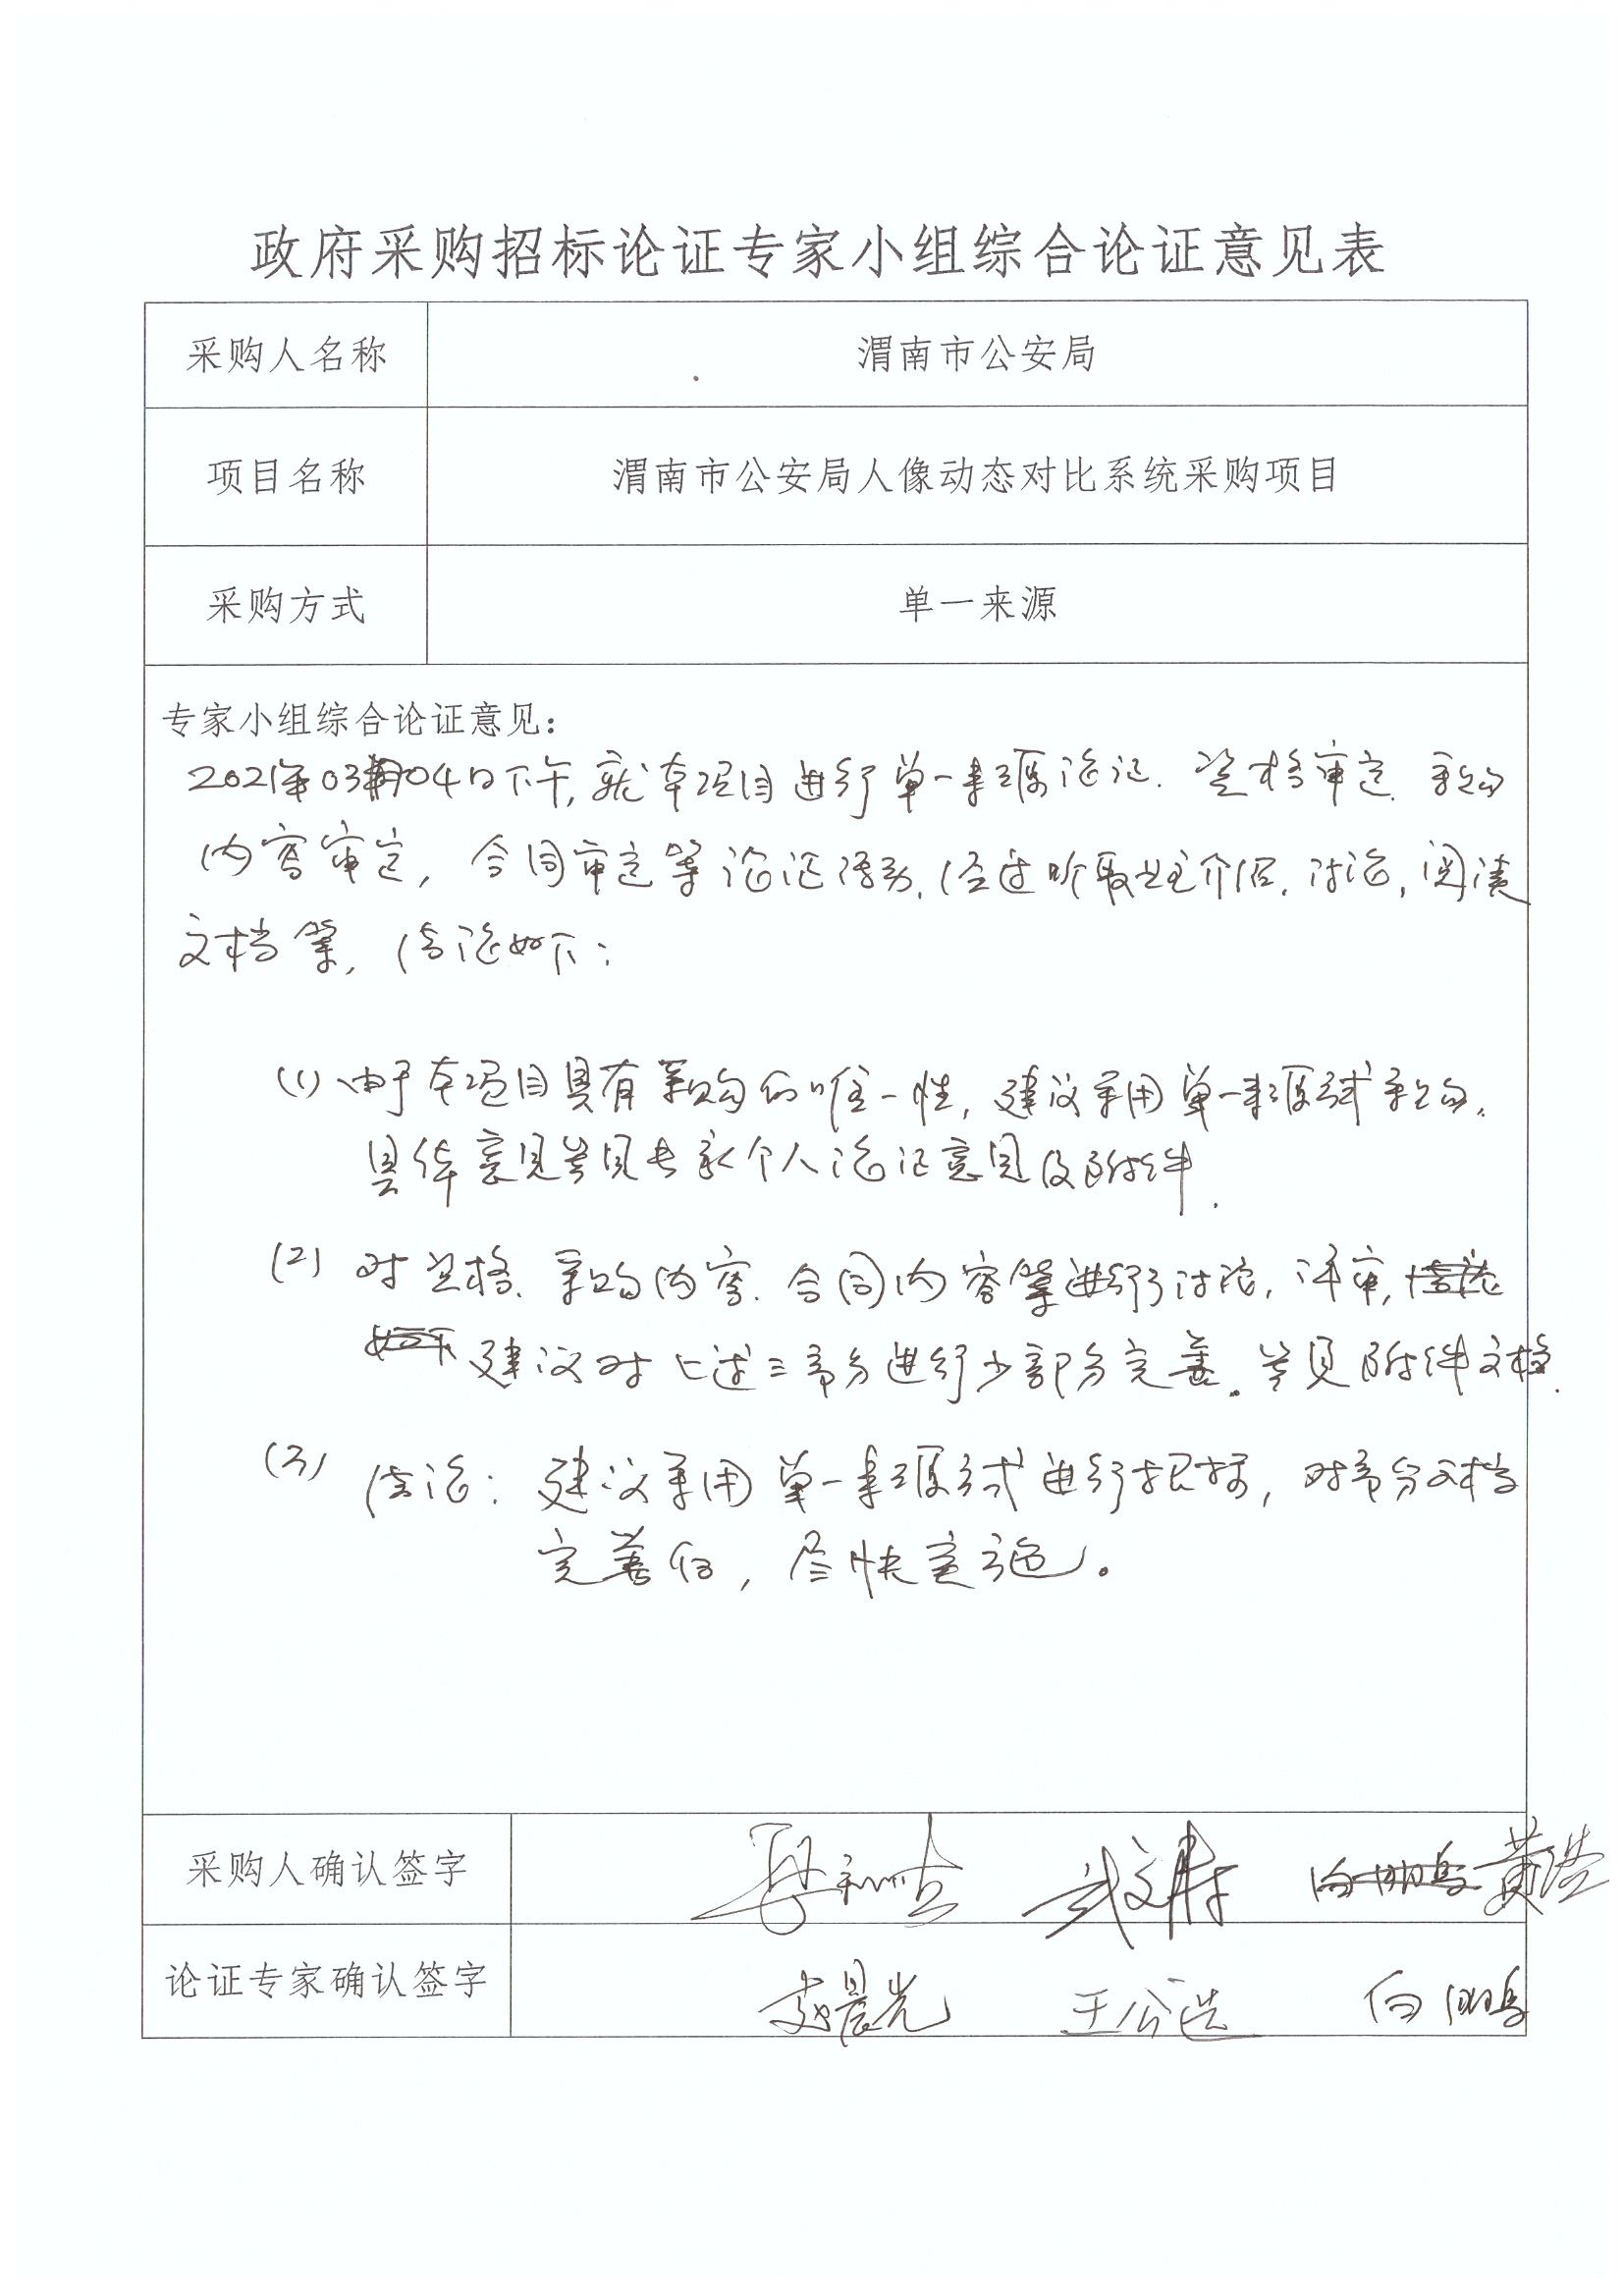 政府采购招标论证专家小组综合论证意见表
采购人名称 渭南市公安局
项目名称 渭南市公安局人像动态对比系统采购项目
采购方式 单一来源
专家小组综合论证意见：
2021年03月04日下午，就本项目进行单一来源论证、资格审定、采购
内容审定，合同审定等论证活动，经过听取业主介绍，讨论，阅读
文档等，结论如下：
(1) 由于本项目具有采购的唯一性，建议采用单一来源方式采购。
具体意见参见专家个人论证意见及附件。
(2) 对资格、采购内容、合同内容等进行讨论，评审，
建议对上述三部分进行少部分完善。参见附件文档.
(3) 结论：建议采用单一来源方式进行招标，对部分文档
完善后，尽快实施。
采购人确认签字 黄浩
论证专家确认签字 赵晨光 王公选 白鹏